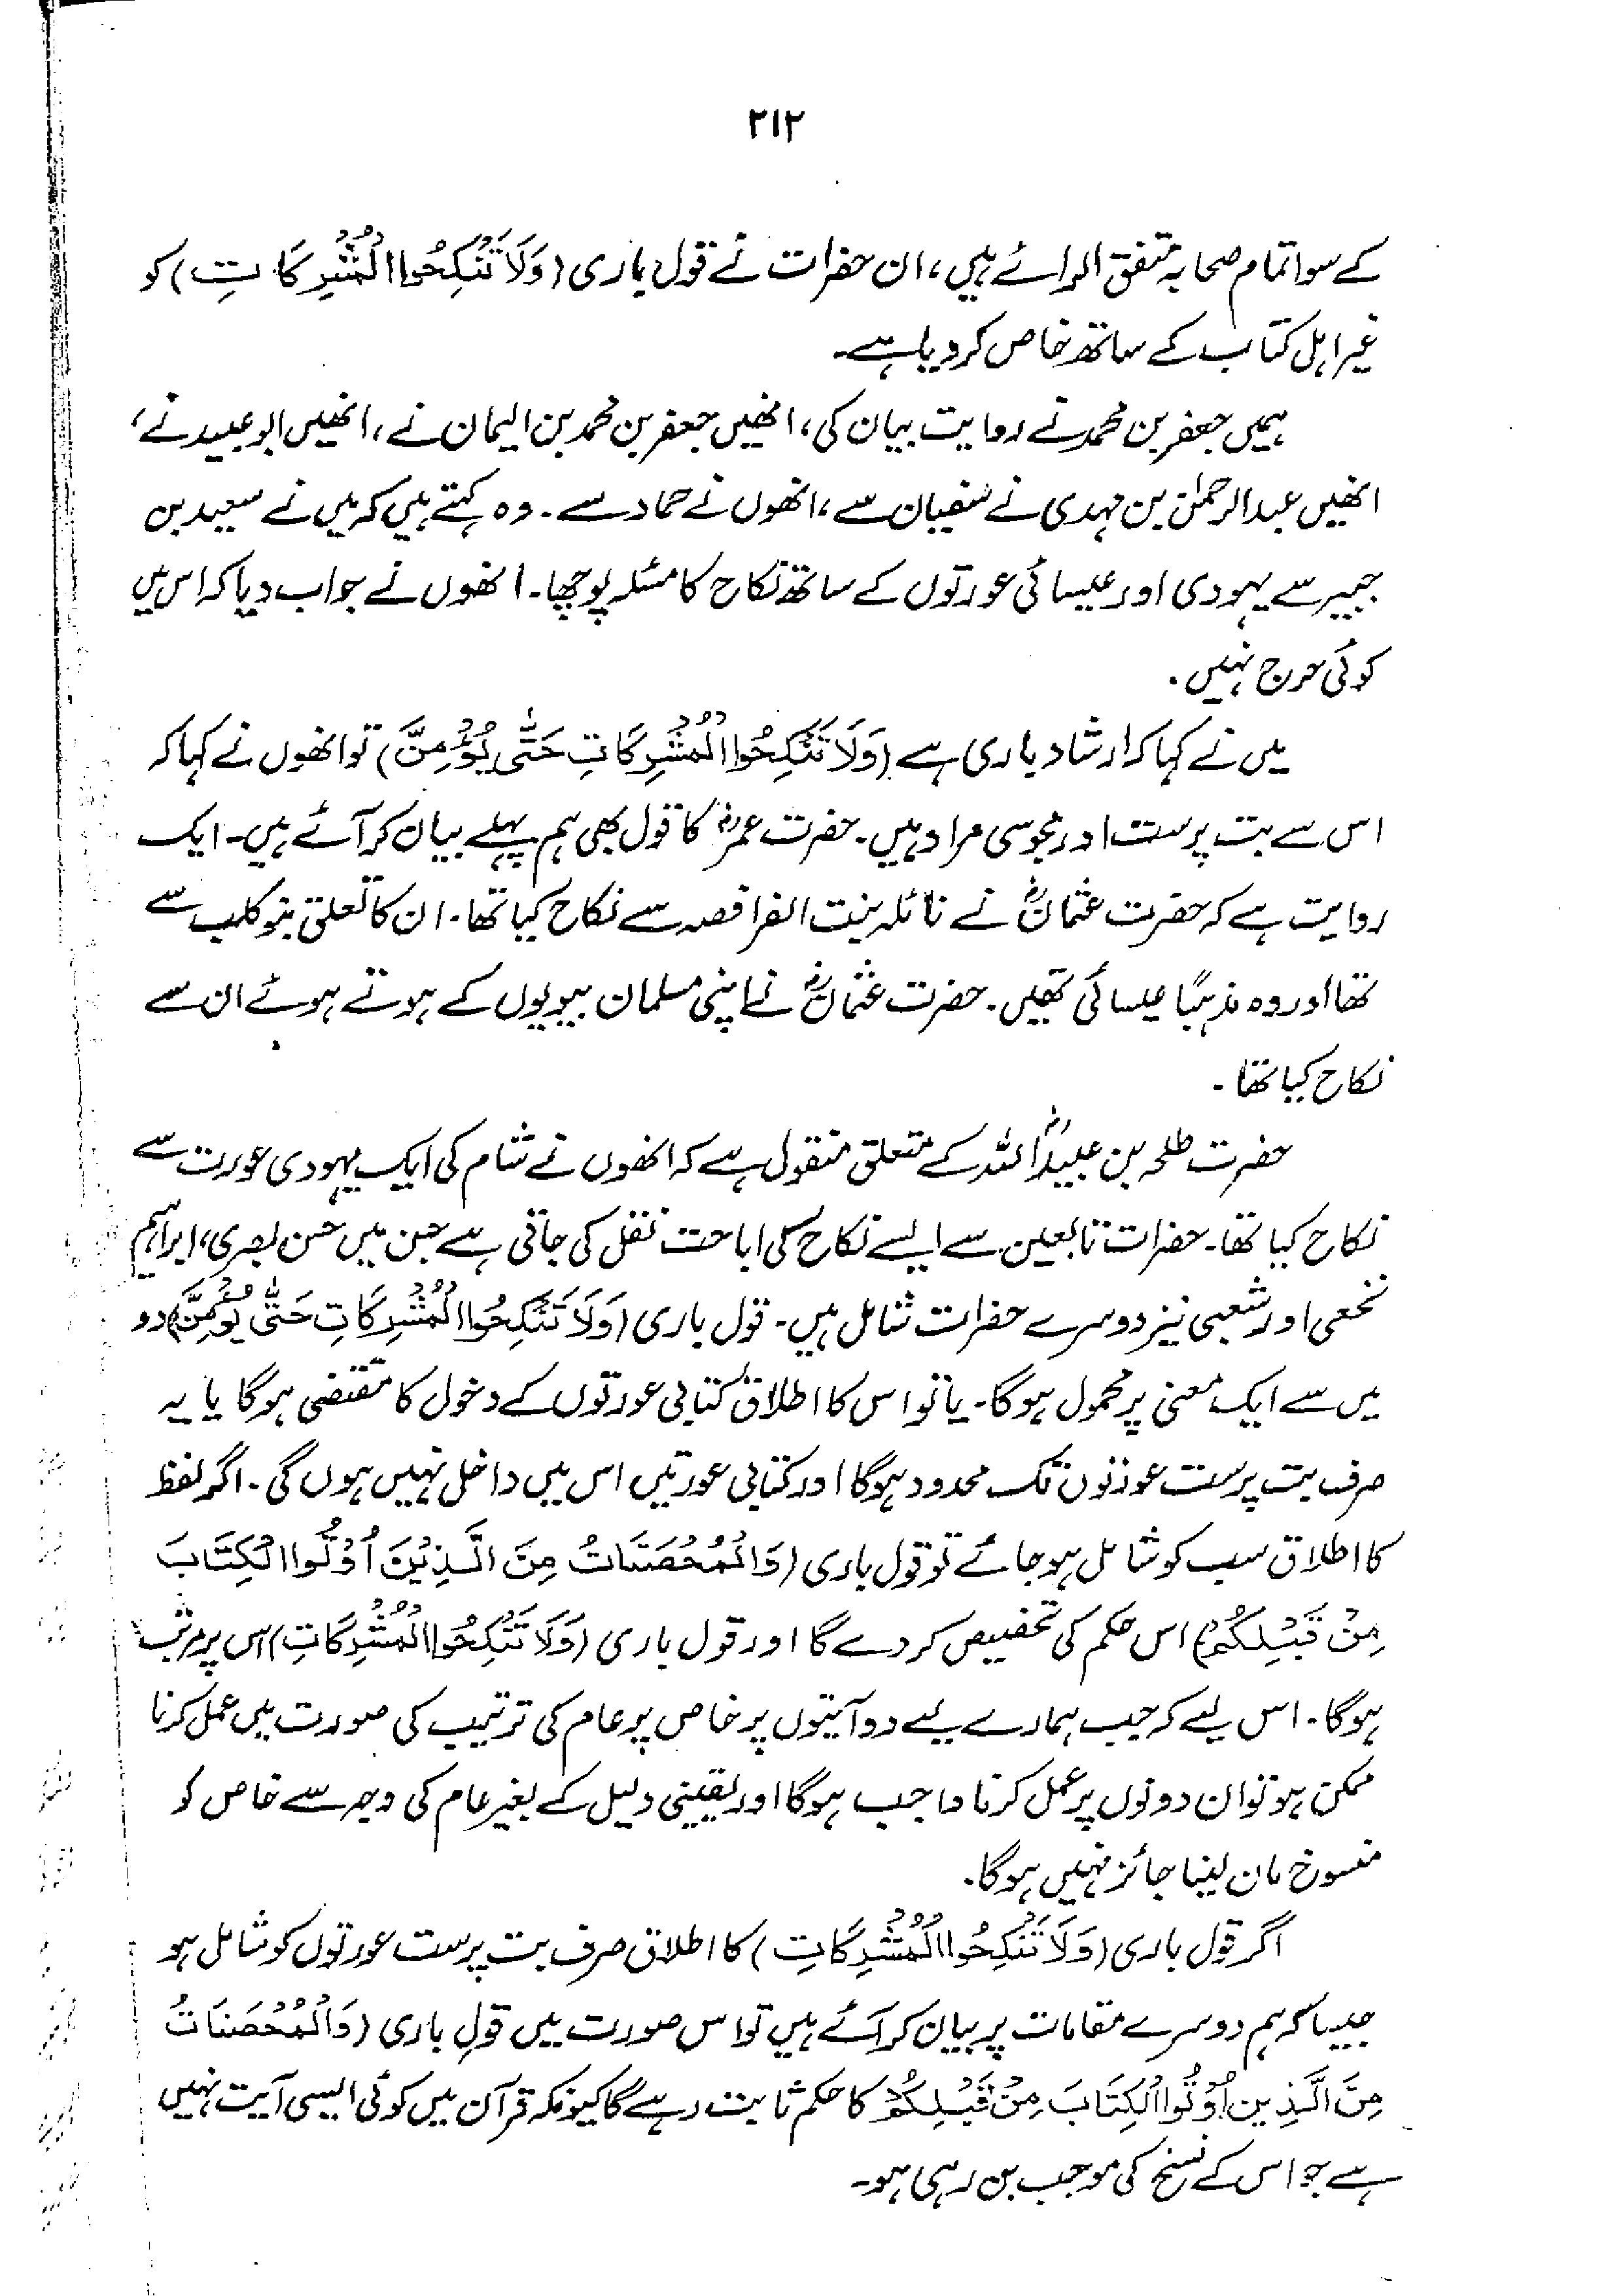 ۲۱۲
کے سوا تمام صحابہ متفق الرائے ہیں، ان حضرات نے قول باری (وَلَا تَنْكِحُوا الْمُشْرِكَاتِ) کو
غیر اہل کتاب کے ساتھ خاص کر دیا ہے۔
ہمیں جعفر بن محمد نے روایت بیان کی، انھیں جعفر بن محمد بن الیمان نے، انھیں ابو عبید نے،
انھیں عبدالرحمٰن بن مہدی نے سفیان سے، انھوں نے حماد سے۔ وہ کہتے ہیں کہ میں نے سعید بن
جبیر سے یہودی اور عیسائی عورتوں کے ساتھ نکاح کا مسئلہ پوچھا۔ انھوں نے جواب دیا کہ اس میں
کوئی حرج نہیں۔
میں نے کہا کہ ارشاد باری ہے (وَلَا تَنْكِحُوا الْمُشْرِكَاتِ حَتّٰى يُؤْمِنَّ) تو انھوں نے کہا کہ
اس سے بت پرست اور مجوسی مراد ہیں۔ حضرت عمرؓ کا قول بھی ہم پہلے بیان کر آئے ہیں۔ ایک
روایت ہے کہ حضرت عثمانؓ نے نائلہ بنت الفرافصہ سے نکاح کیا تھا۔ ان کا تعلق بنو کلب سے
تھا اور وہ مذہباً عیسائی تھیں۔ حضرت عثمانؓ نے اپنی مسلمان بیویوں کے ہوتے ہوئے ان سے
نکاح کیا تھا۔
حضرت طلحہ بن عبیداللہؓ کے متعلق منقول ہے کہ انھوں نے شام کی ایک یہودی عورت سے
نکاح کیا تھا۔ حضرات تابعین سے ایسے نکاح کی اباحت نقل کی جاتی ہے جن میں حسن بصری، ابراہیم
نخعی اور شعبی نیز دوسرے حضرات شامل ہیں۔ قول باری (وَلَا تَنْكِحُوا الْمُشْرِكَاتِ حَتّٰى يُؤْمِنَّ) دو
میں سے ایک معنی پر محمول ہوگا۔ یا تو اس کا اطلاق کتابی عورتوں کے دخول کا مقتضی ہوگا یا یہ
صرف بت پرست عورتوں تک محدود ہوگا اور کتابی عورتیں اس میں داخل نہیں ہوں گی۔ اگر لفظ
کا اطلاق سب کو شامل ہو جائے تو قول باری (وَالْمُحْصَنَاتُ مِنَ الَّذِيْنَ اُوْتُوا الْكِتَابَ
مِنْ قَبْلِكُمْ) اس حکم کی تخصیص کر دے گا اور قول باری (وَلَا تَنْكِحُوا الْمُشْرِكَاتِ) اس پر مرتب
ہوگا۔ اس لیے کہ جب ہمارے لیے دو آیتوں پر خاص پر عام کی ترتیب کی صورت میں عمل کرنا
ممکن ہو تو ان دونوں پر عمل کرنا واجب ہوگا اور یقینی دلیل کے بغیر عام کی وجہ سے خاص کو
منسوخ مان لینا جائز نہیں ہوگا۔
اگر قول باری (وَلَا تَنْكِحُوا الْمُشْرِكَاتِ) کا اطلاق صرف بت پرست عورتوں کو شامل ہو
جیسا کہ ہم دوسرے مقامات پر بیان کر آئے ہیں تو اس صورت میں قولِ باری (وَالْمُحْصَنَاتُ
مِنَ الَّذِيْنَ اُوْتُوا الْكِتَابَ مِنْ قَبْلِكُمْ کا حکم ثابت رہے گا کیونکہ قرآن میں کوئی ایسی آیت نہیں
ہے جو اس کے نسخ کی موجب بن رہی ہو۔